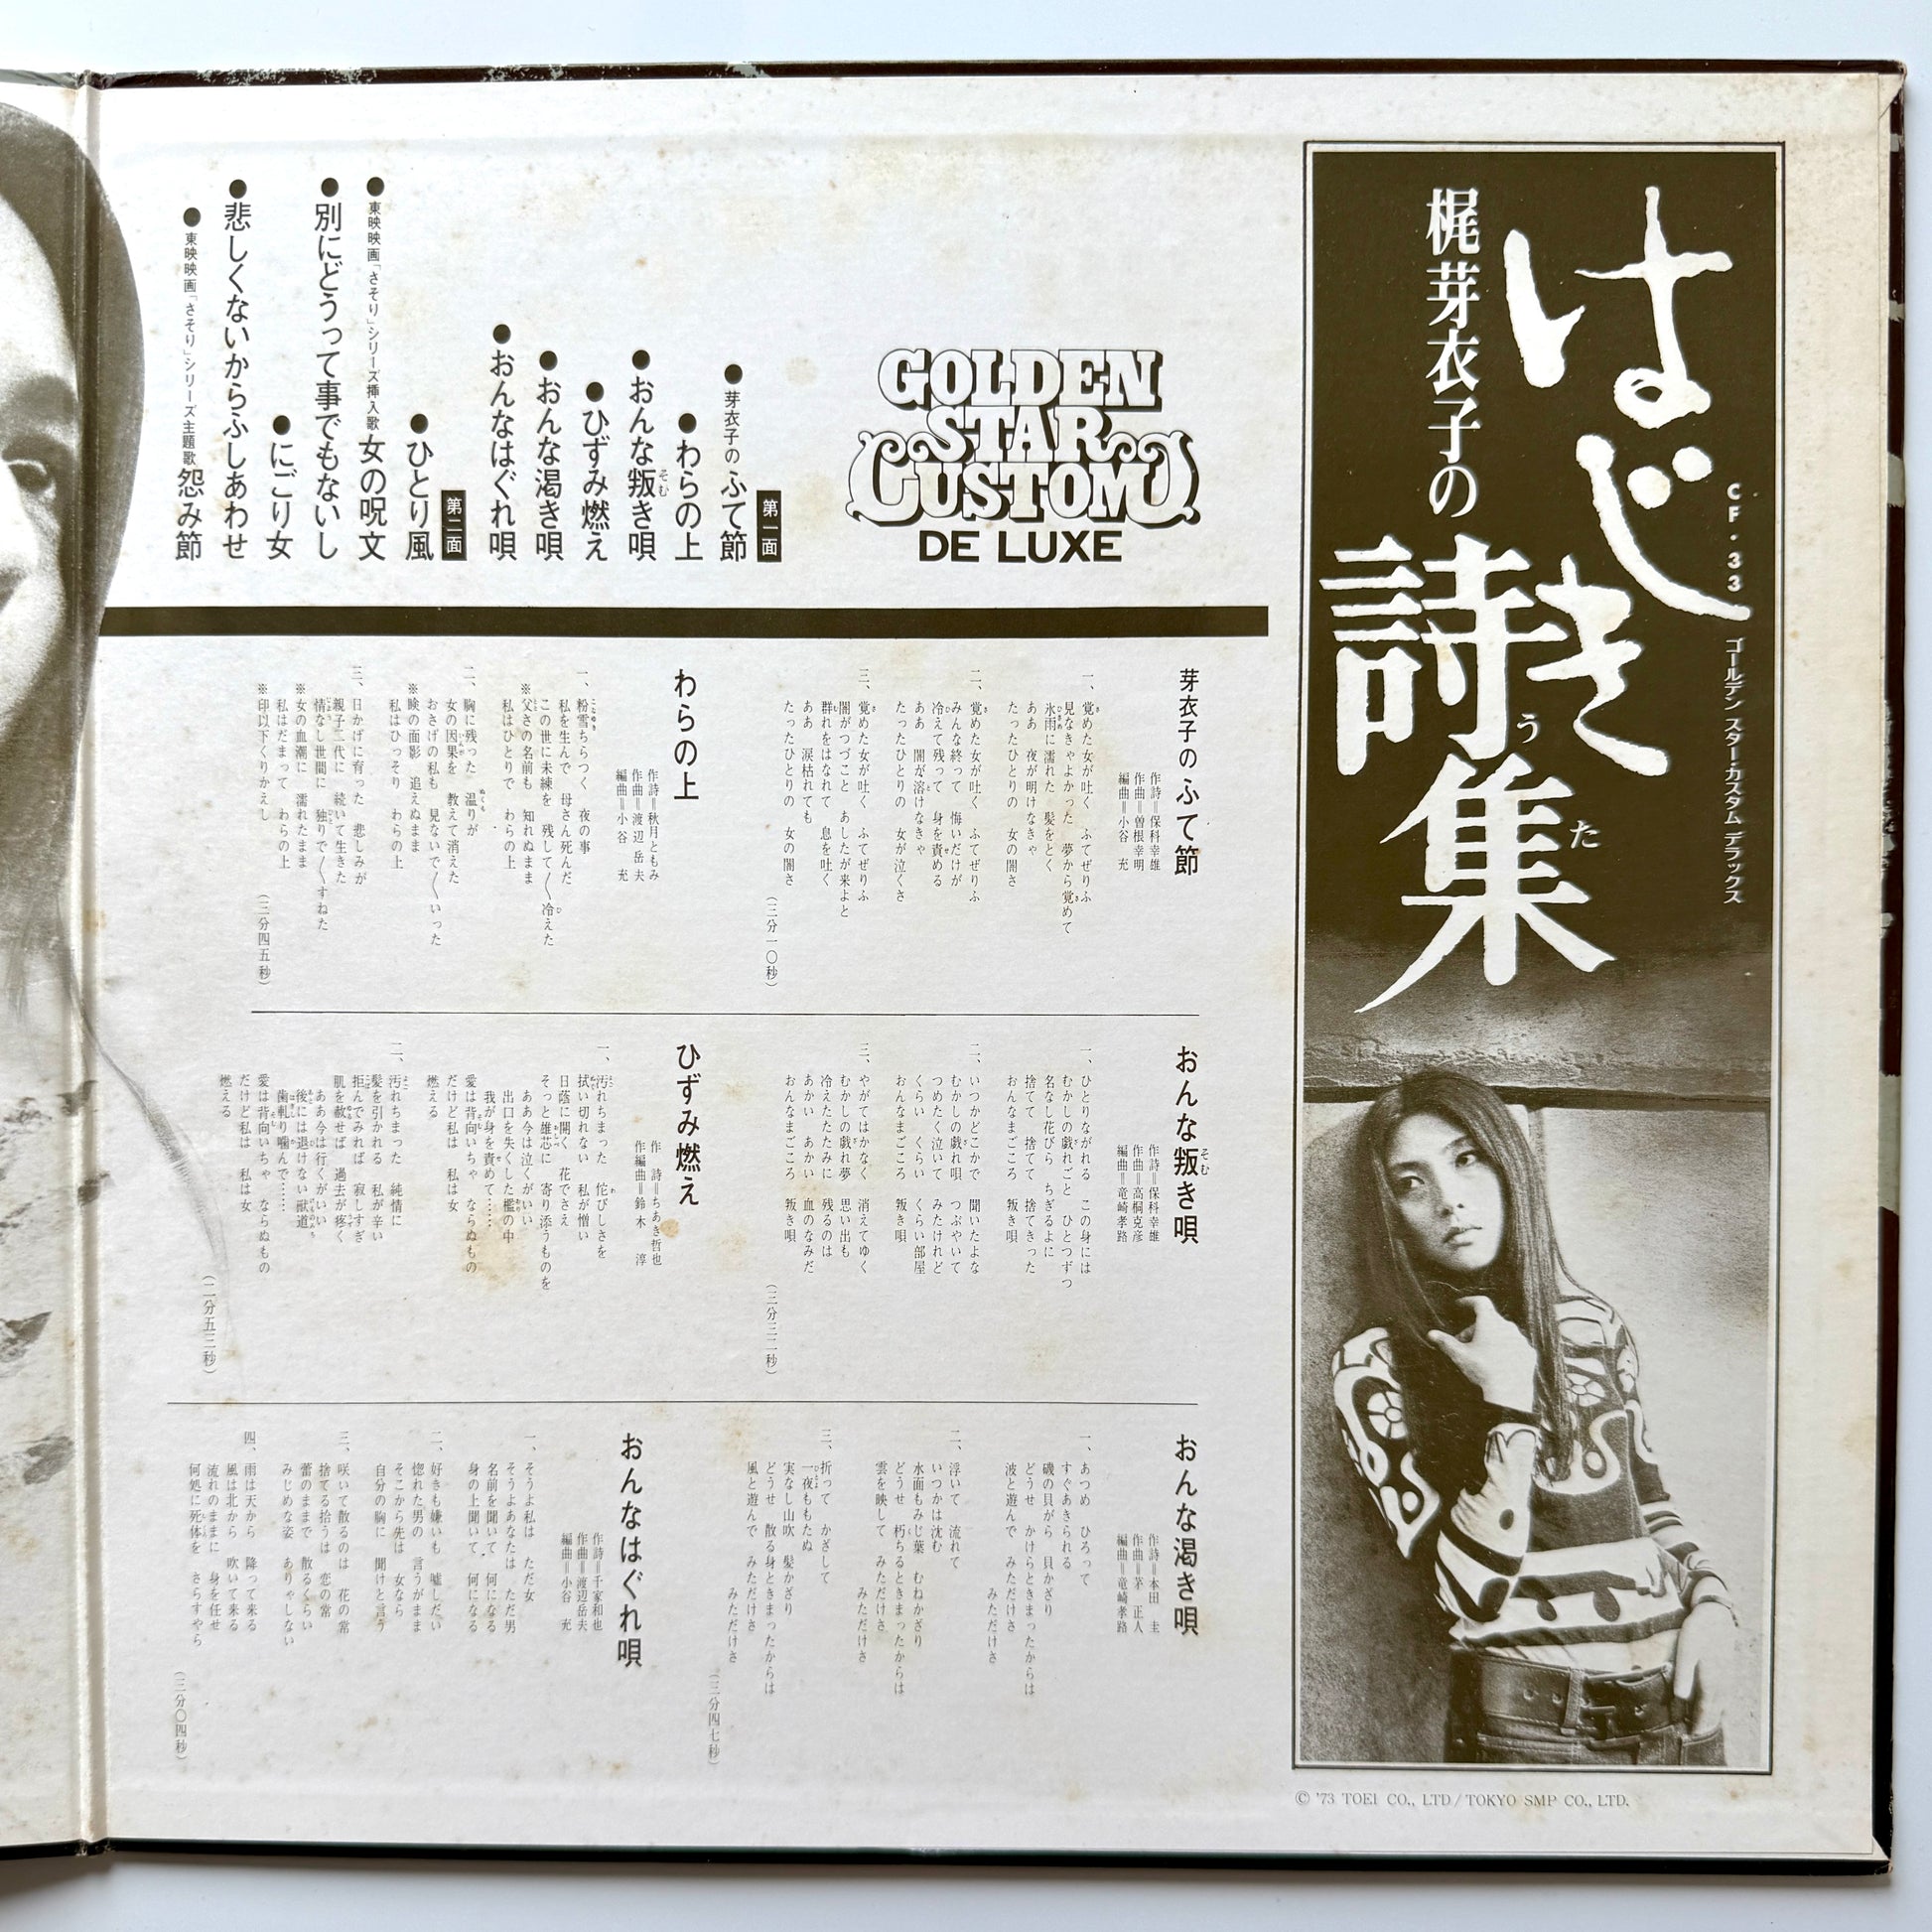 はじき詩集
うた
梶芽衣子の
CF・33 ゴールデン スター・カスタム デラックス
© '73 TOEI CO., LTD / TOKYO SMP CO., LTD.
GOLDEN
STAR
CUSTOM
DE LUXE
第一面
●芽衣子のふて節
●わらの上
●おんな叛き唄
そむ
●ひずみ燃え
●おんな渇き唄
●おんなはぐれ唄
第二面
●ひとり風
●東映映画「さそり」シリーズ挿入歌 女の呪文
●別にどうって事でもないし
●にごり女
●悲しくないからふしあわせ
●東映映画「さそり」シリーズ主題歌 怨み節
芽衣子のふて節
作詩=保科幸雄
作曲=曽根幸明
編曲=小谷 充
一、覚めた女が吐く ふてぜりふ
見なきゃよかった 夢から覚めて
氷雨に濡れた 髪をとく
ああ 夜が明けなきゃ
たったひとりの 女の闇さ
二、覚めた女が吐く ふてぜりふ
みんな終って 悔いだけが
冷えて残って 身を責める
ああ 闇が溶けなきゃ
たったひとりの 女が泣くさ
三、覚めた女が吐く ふてぜりふ
闇がつづこと あしたが来よと
群れをはなれて 息を吐く
ああ 涙枯れても
たったひとりの 女の闇さ
(三分一〇秒)
わらの上
作詩=秋月ともみ
作曲=渡辺岳夫
編曲=小谷 充
一、粉雪ちらつく 夜の事
私を生んで 母さん死んだ
この世に未練を 残して〱冷えた
※父さの名前も 知れぬまま
私はひとりで わらの上
二、胸に残った 温りが
女の因果を 教えて消えた
おさげの私も 見ないで〱いった
※瞼の面影 追えぬまま
私はひっそり わらの上
三、日かげに育った 悲しみが
親子二代に 続いて生きた
情なし世間に 独りで〱すねた
※女の血潮に 濡れたまま
私はだまって わらの上
※印以下くりかえし
(三分四五秒)
おんな叛き唄
そむ
作詩=保科幸雄
作曲=高桐克彦
編曲=竜崎孝路
一、ひとりながれる この身には
むかしの戯れごと ひとつずつ
名なし花びら ちぎるよに
捨てて 捨てて 捨てきった
おんなまごころ 叛き唄
二、いつかどこかで 聞いたよな
むかしの戯れ唄 つぶやいて
つめたく泣いて みたけれど
くらい くらい くらい部屋
おんなまごころ 叛き唄
三、やがてはかなく 消えてゆく
むかしの戯れ夢 思い出も
冷えたたたみに 残るのは
あかい あかい 血のなみだ
おんなまごころ 叛き唄
(三分三二秒)
ひずみ燃え
作 詩=ちあき哲也
作編曲=鈴木 淳
一、汚れちまった 侘びしさを
拭い切れない 私が憎い
日蔭に開く 花でさえ
そっと雄芯に 寄り添うものを
ああ今は泣くがいい
出口を失くした檻の中
我が身を責めて……
愛は背向いちゃ ならぬもの
だけど私は 私は女
燃える
二、汚れちまった 純情に
髪を引かれる 私が辛い
拒んでみれば 寂しすぎ
肌を赦せば 過去が疼く
ああ今は行くがいい
後には退けない獣道
歯軋り噛んで……
愛は背向いちゃ ならぬもの
だけど私は 私は女
燃える
(二分五三秒)
おんな渇き唄
作詩=本田 圭
作曲=茅 正人
編曲=竜崎孝路
一、あつめ ひろって
すぐあきられる
磯の貝がら 貝かざり
どうせ かけらときまったからは
波と遊んで みただけさ
みただけさ
二、浮いて 流れて
いつかは沈む
水面もみじ葉 むねかざり
どうせ 朽ちるときまったからは
雲を映して みただけさ
みただけさ
三、折って かざして
一夜ももたぬ
実なし山吹 髪かざり
どうせ 散る身ときまったからは
風と遊んで みただけさ
みただけさ
(三分四七秒)
おんなはぐれ唄
作詩=千家和也
作曲=渡辺岳夫
編曲=小谷 充
一、そうよ私は ただ女
そうよあなたは ただ男
名前を聞いて 何になる
身の上聞いて 何になる
二、好きも嫌いも 嘘しだい
惚れた男の 言うがまま
そこから先は 女なら
自分の胸に 聞けと言う
三、咲いて散るのは 花の常
捨てる拾うは 恋の常
蕾のままで 散るくらい
みじめな姿 ありゃしない
四、雨は天から 降って来る
風は北から 吹いて来る
流れのままに 身を任せ
何処に死体を さらすやら
(三分〇四秒)